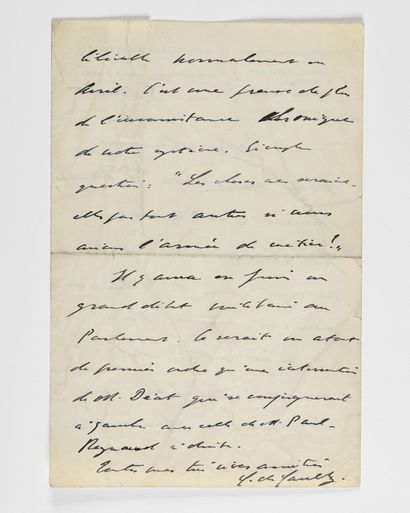 libérable normalement en
Avril. C'est une preuve de plus
de l'inconsistance chronique
de notre système. Simple
question : "Les choses ne seraient-
elles pas tout autres si nous
avions l'armée de métier ?"
Il y aura en Juin un
grand débat militaire au
Parlement. Ce serait un atout
de premier ordre qu'une intervention
de M. Déat qui se conjuguerait
à gauche avec celle de M. Paul-
Reynaud à droite.
Toutes mes très vives amitiés
C. de Gaulle